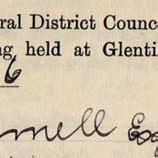 ral District Counc
ng held at Glenti
6
nnell Esq